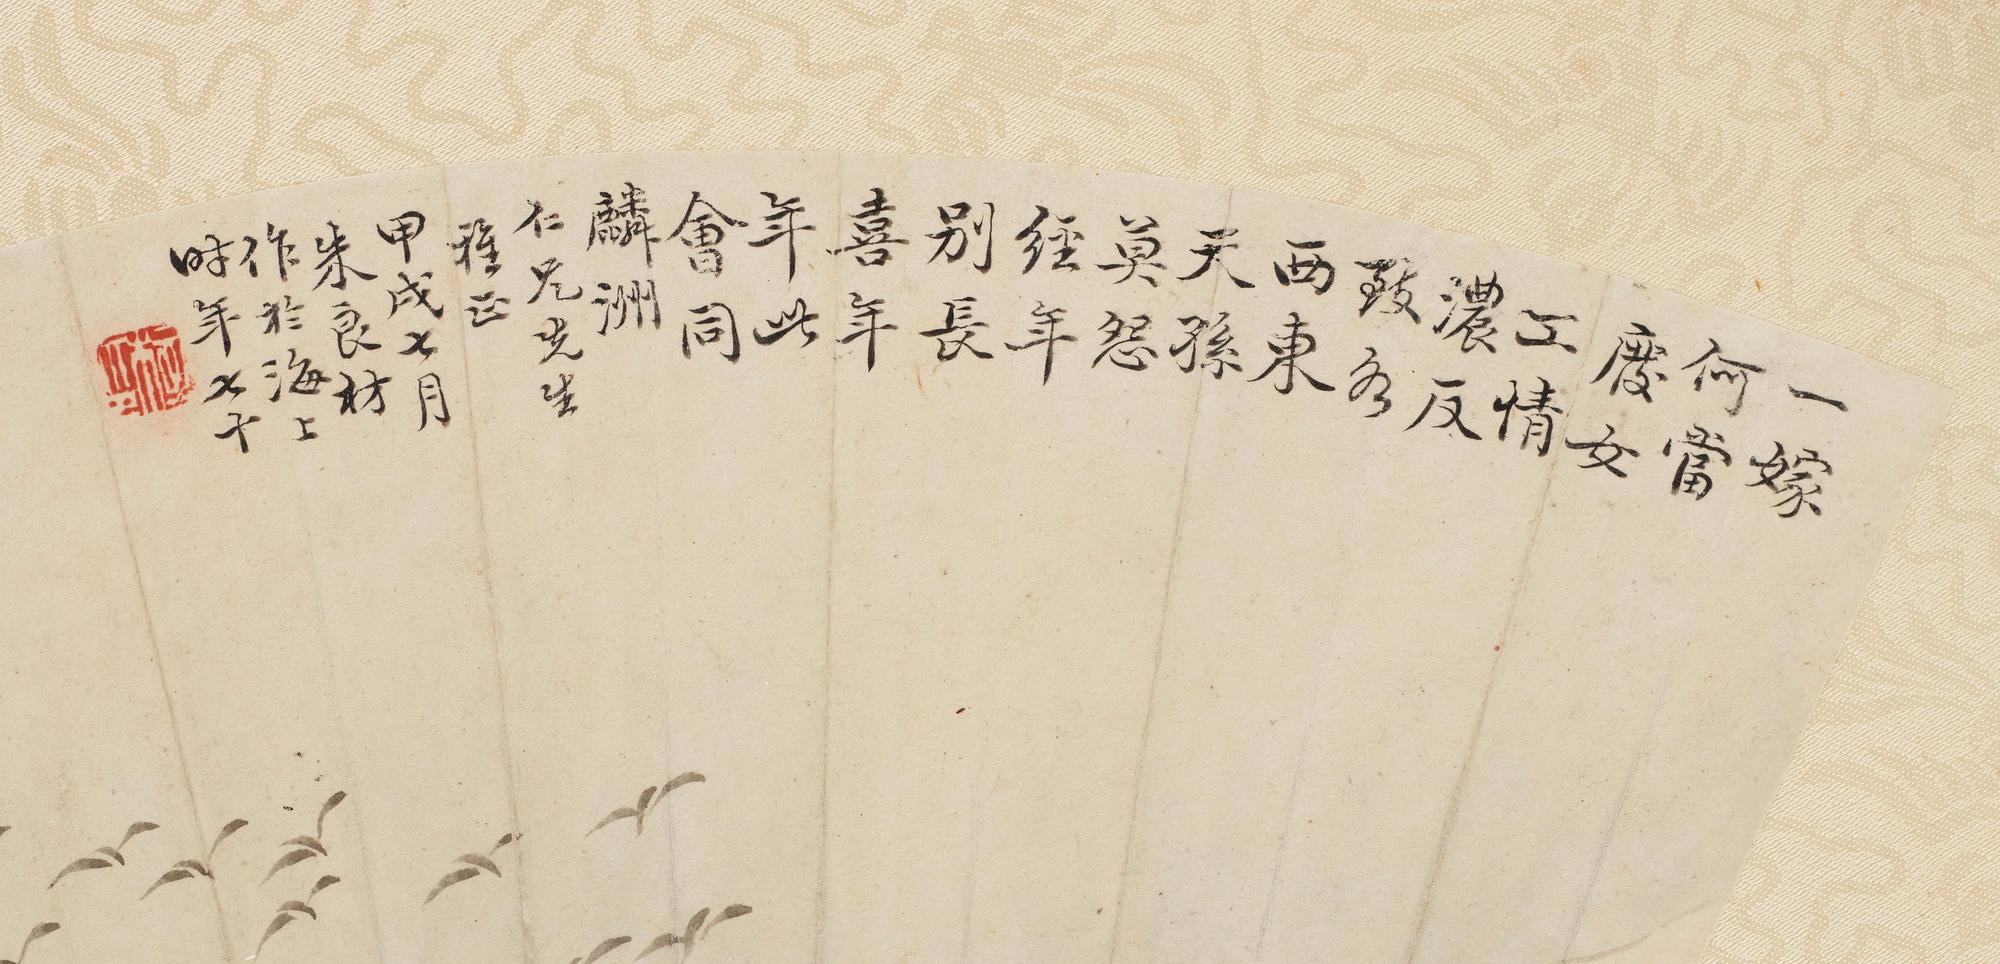 一嫁
何當
廢女
工情
濃反
致各
西東
天孫
莫怨
經年
別長
喜年
年此
會同
麟洲
仁兄先生
雅正
甲戌七月
朱良材
作於海上
时年七十